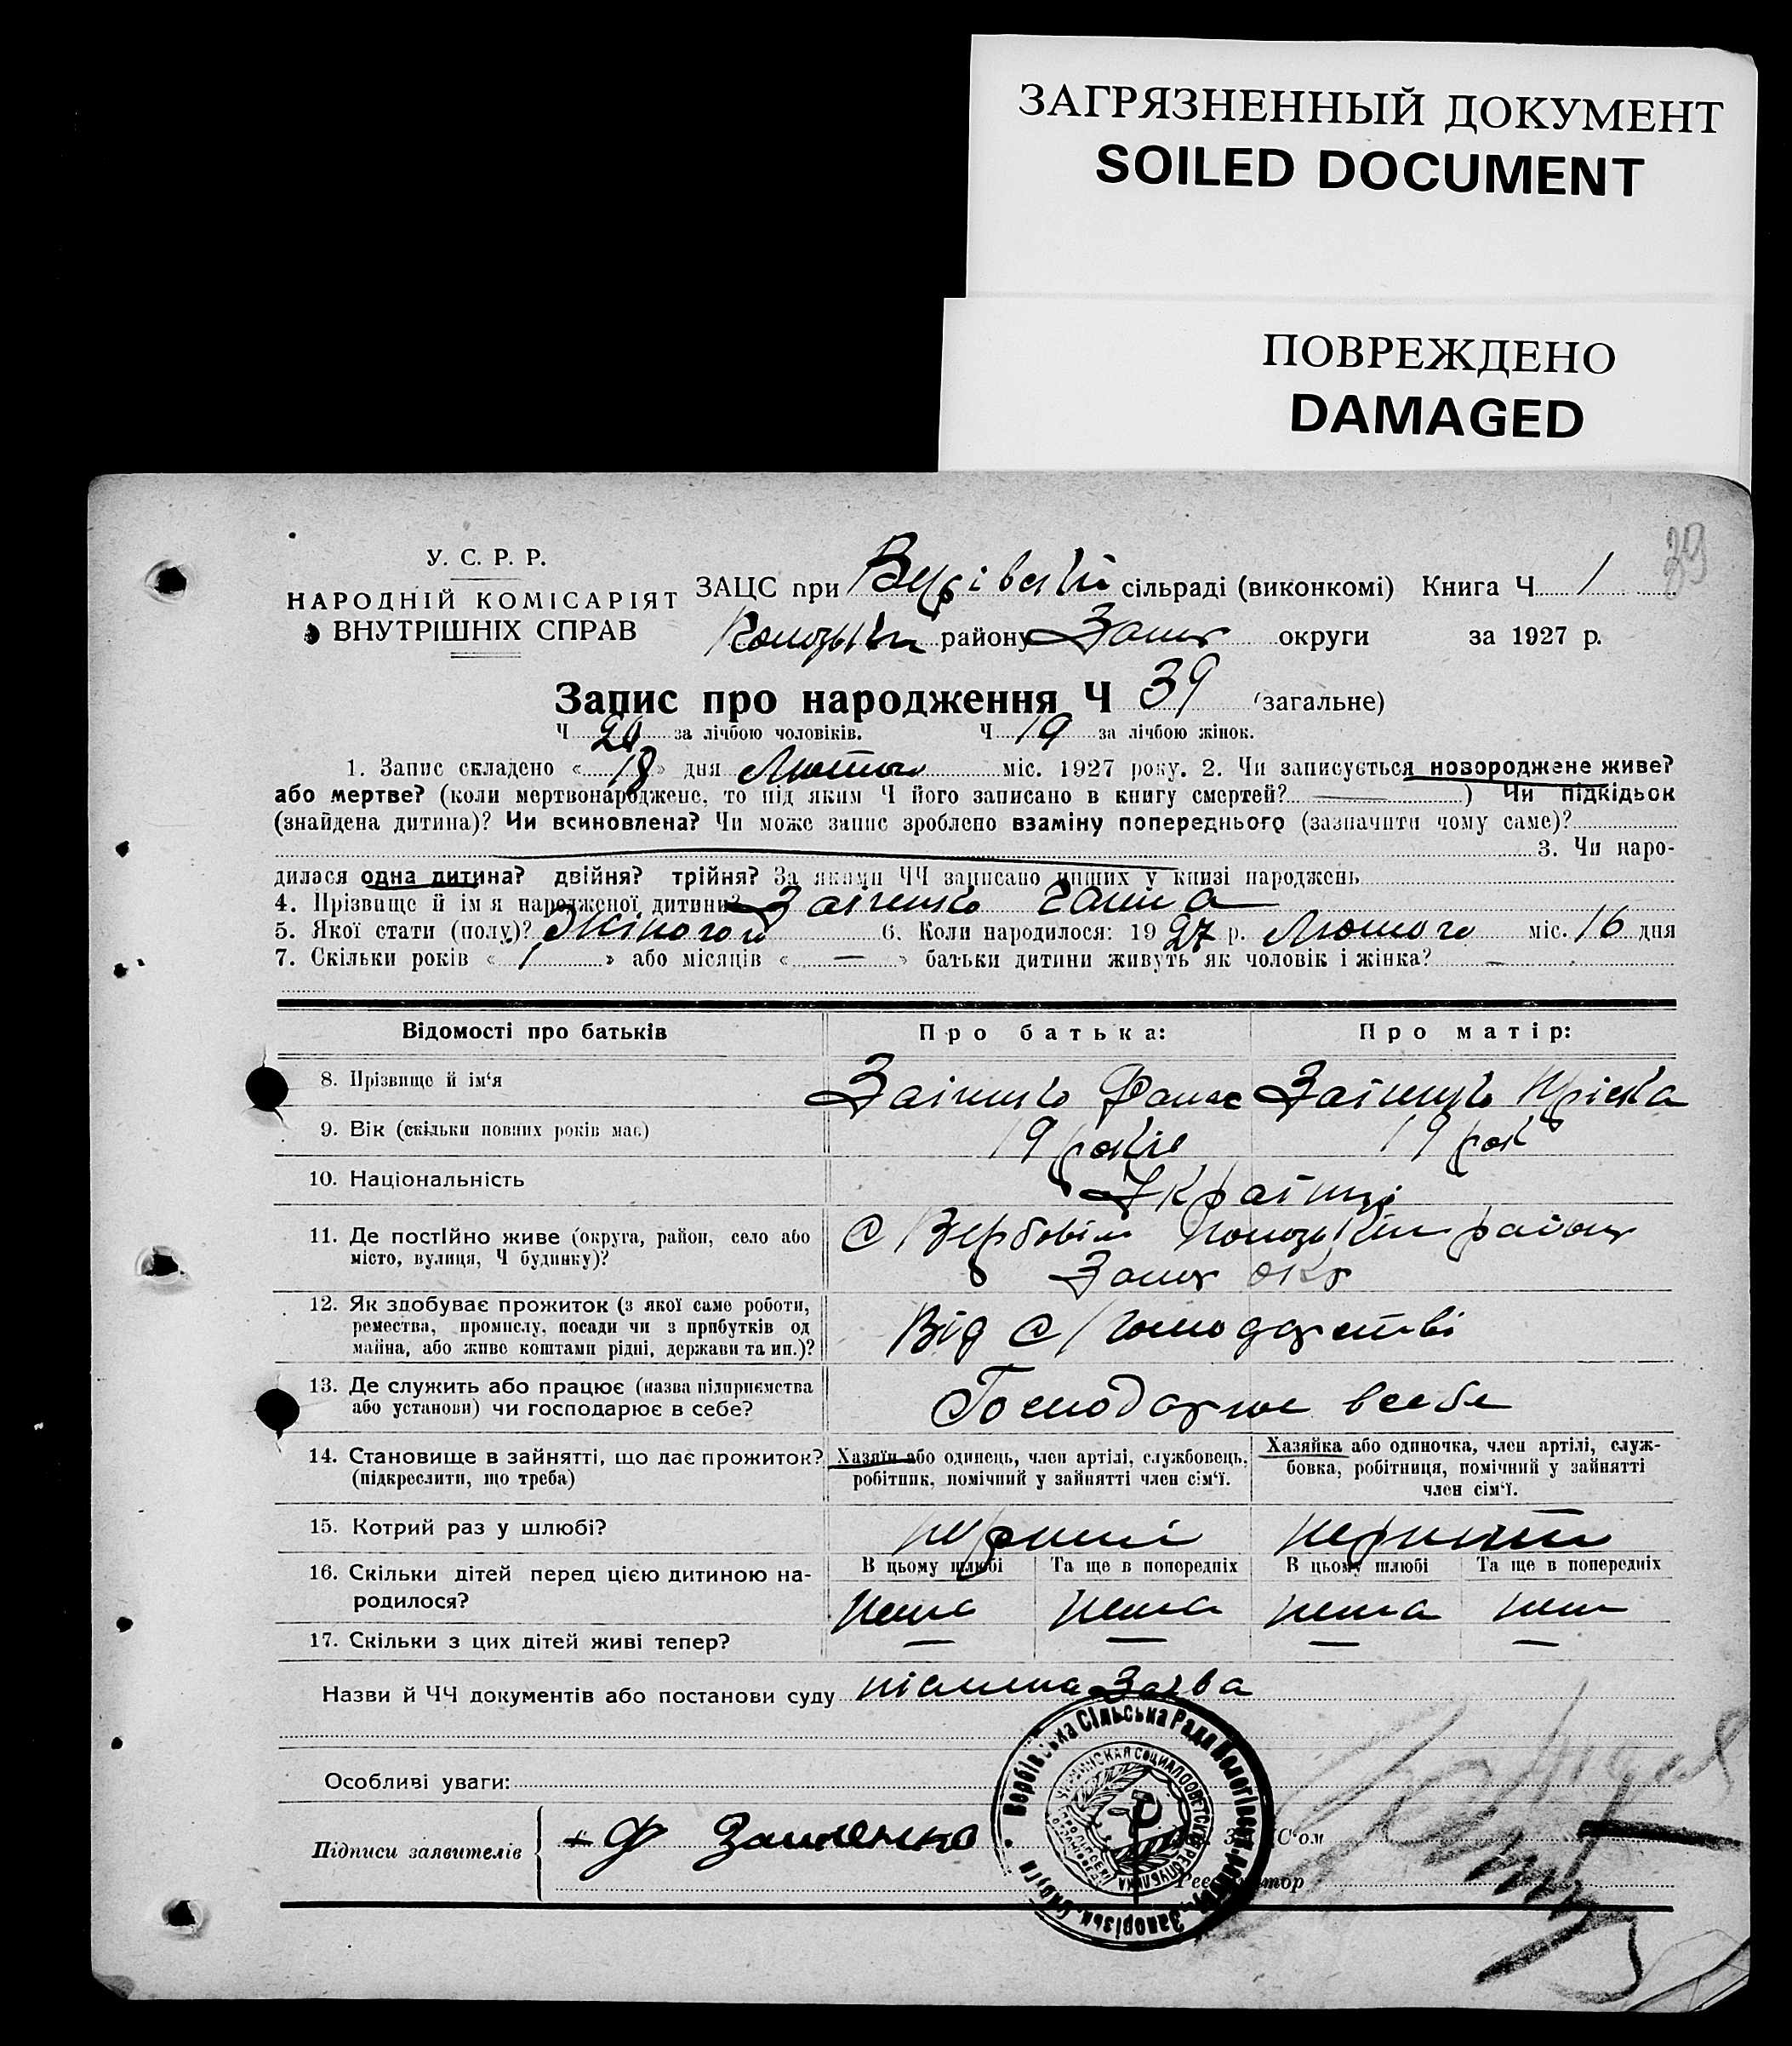 ЗАГРЯЗНЕННЫЙ ДОКУМЕНТ
SOILED DOCUMENT
ПОВРЕЖДЕНО
DAMAGED
39
У. С. Р. Р.
НАРОДНІЙ КОМІСАРІЯТ
ВНУТРІШНІХ СПРАВ
ЗАЦС при сільраді (виконкомі) Книга Ч 1
району Запор округи за 1927 р.
Запис про народження Ч 39 (загальне)
Ч 20 за лічбою чоловіків. Ч 19 за лічбою жінок.
1. Запис складено « 18 » дня Лютого міс. 1927 року. 2. Чи записується новороджене живе?
або мертве? (коли мертвонароджене, то під яким Ч його записано в книгу смертей? — ) Чи підкідьок
(знайдена дитина)? Чи всиновлена? Чи може запис зроблено взаміну попереднього (зазначити чому саме)?
3. Чи наро-
дилася одна дитина? двійня? трійня? За якими ЧЧ записано инших у книзі народжень
4. Прізвище й ім'я народженої дитини? Заіченко Ганна
5. Якої стати (полу)? Жіночої 6. Коли народилося: 1927 р. Лютого міс. 16 дня
7. Скільки років « 1 » або місяців « — » батьки дитини живуть як чоловік і жінка? —
Відомості про батьків
Про батька:
Про матір:
8. Прізвище й ім'я
Заіченко Фанас
Заіченко Пріська
9. Вік (скільки повних років має)
19 років
19 рок
10. Національність
Українці
11. Де постІйно живе (округа, район, село або
місто, вулиця, Ч будинку)?
С Вербовім району
Запор окр
12. Як здобуває прожиток (з якої саме роботи,
ремества, промислу, посади чи з прибутків од
майна, або живе коштами рідні, держави та ин.)?
Від С/господарстві
13. Де служить або працює (назва підприємства
або установи) чи господарює в себе?
Господарює всебе
14. Становище в зайнятті, що дає прожиток?
(підкреслити, що треба)
Хазяїн або одинець, член артілі, службовець,
робітник, помічний у зайнятті член сім'ї.
Хазяйка або одиночка, член артілі, служ-
бовка, робітниця, помічний у зайнятті
член сім'ї.
15. Котрий раз у шлюбі?
перший
перший
16. Скільки дітей перед цією дитиною на-
родилося?
В цьому шлюбі Та ще в попередніх В цьому шлюбі Та ще в попередніх
нема нема нема нем
17. Скільки з цих дітей живі тепер?
— — — —
Назви й ЧЧ документів або постанови суду
Особливі уваги:
Підписи заявителів
Ф Заиченко
Зав. ЗАЦС'ом
Реєстратор
Вербівська Сільська Рада Пологівськ. району Запорізьк. Округи